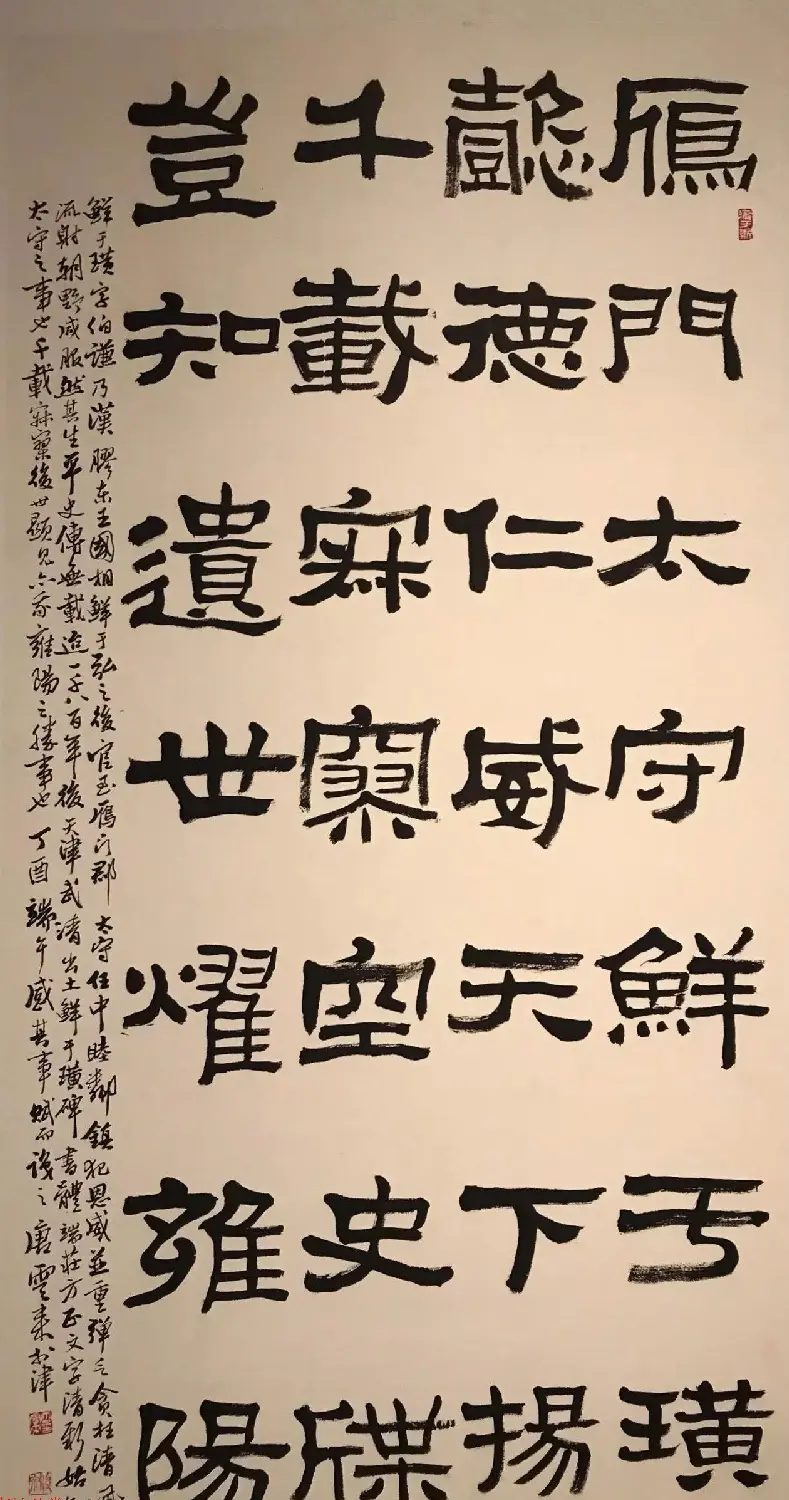 雁門太守鮮于璜
懿德仁威天下揚
千載寂寞空史牒
豈知遺世耀雍陽
鮮于璜字伯謙乃漢膠东王國相鮮于弘之後官至雁门郡太守任中睦鄰鎮犯恩威並重彈乞貪枉清風
流射朝野咸服然其生平史傳無載迨一千八百年後天津武清出土鮮于璜碑書體端莊方正文字清新始
太守之事也千載寂寞後世顯見亦我雍陽之勝事也丁酉端午感其事賦而識之唐雲来於津